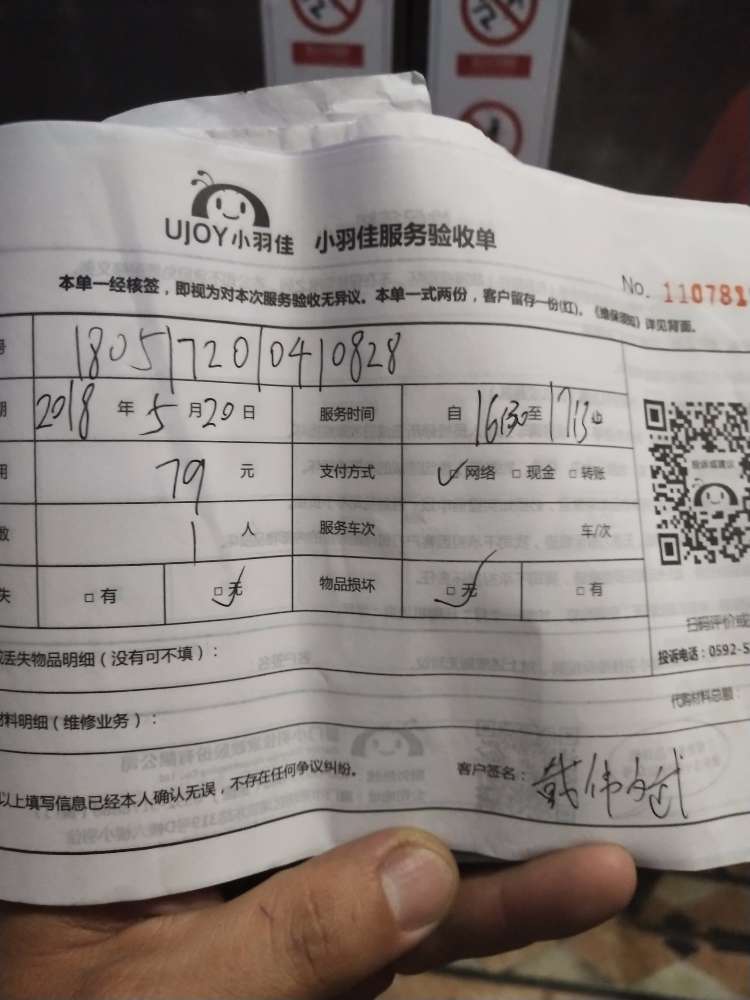 UJOY小羽佳 小羽佳服务验收单
No. 110781
本单一经核签，即视为对本次服务验收无异议。本单一式两份，客户留存一份(红)。《维保须知》详见背面。
号 180517200410828
期 2018 年 5 月 20 日 服务时间 自 16:30 至 17:30
用 79 元 支付方式 ☑网络 □现金 □转账
数 1 人 服务车次 车/次
失 □有 ☑无 物品损坏 ☑无 □有
投诉或建议
扫码评价或
丢失物品明细（没有可不填）：
投诉电话：0592-5
代购材料总额：
材料明细（维修业务）：
以上填写信息已经本人确认无误，不存在任何争议纠纷。
客户签名：戴伟